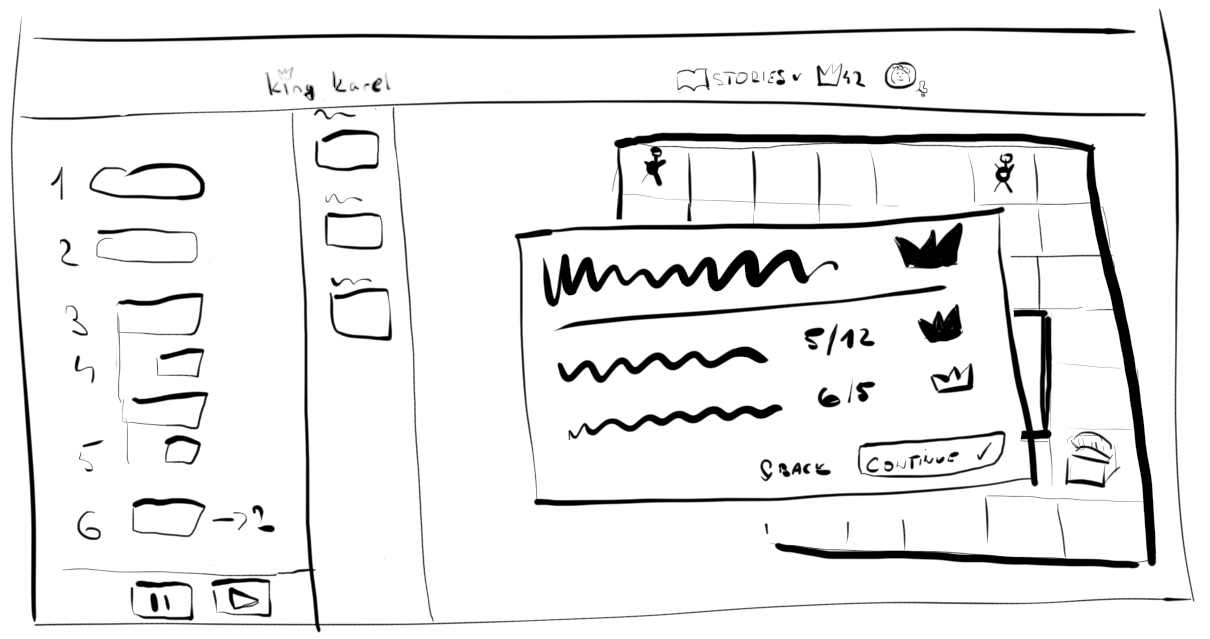 king karel
STORIES 42
1
2
3
4
5
6 →2
5/12
6/5
BACK
CONTINUE ✓